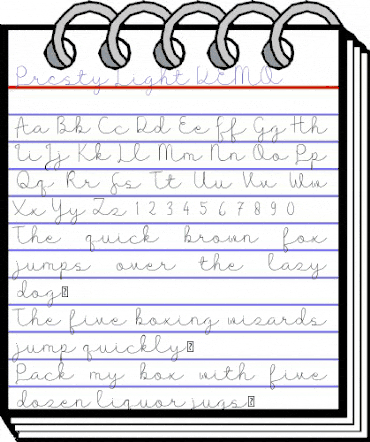 Prcsty Light DEMO
Aa Bb Cc Dd Ee Ff Gg Hh
Ii Jj Kk Ll Mm Nn Oo Pp
Qq Rr Ss Tt Uu Vv Ww
Xx Yy Zz 1 2 3 4 5 6 7 8 9 0
The quick brown fox
jumps over the lazy
dog
The five boxing wizards
jump quickly
Pack my box with five
dozen liquor jugs